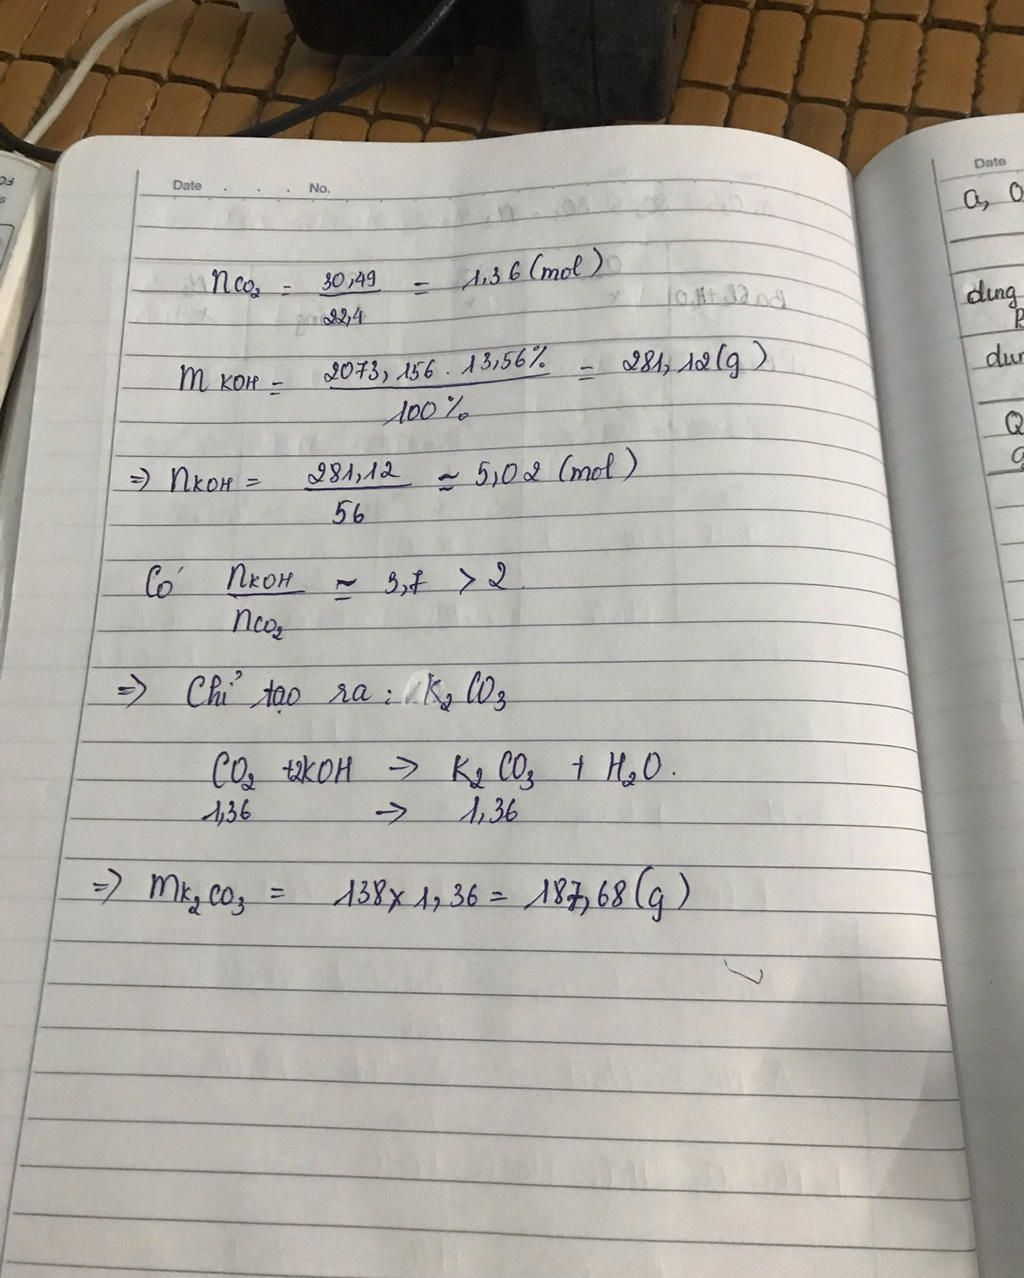 Date . . . No.
nCO₂ = 30,49 / 22,4 = 1,36 (mol)
m KOH = 2073,156 . 13,56% / 100% = 281,12 (g)
=> nKOH = 281,12 / 56 ≃ 5,02 (mol)
Có nKOH / nCO₂ ≃ 3,7 > 2.
=> Chỉ tạo ra : K₂CO₃
CO₂ + 2KOH -> K₂CO₃ + H₂O.
1,36 -> 1,36
=> mK₂CO₃ = 138 x 1,36 = 187,68 (g)
Date
a,
dung